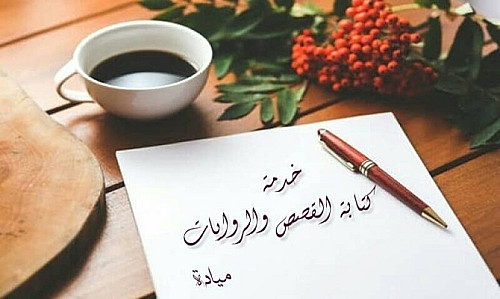 خدمة
كتابة القصص والروايات
ميادة